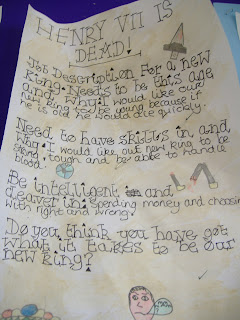 HENRY VII IS
DEAD!
Job Description For a new
King. Needs to be this age
and why. I would like our
new king to be young because if
he is old he would die quickly.
Need to have skills in and
why. I would like out new king to be
strong, tough and be able to handle
blood.
Be intelligent in and
cleaver in. Spending money and choosing
with right and wrong.
Do you think you have got
what it takes to be our
new king?